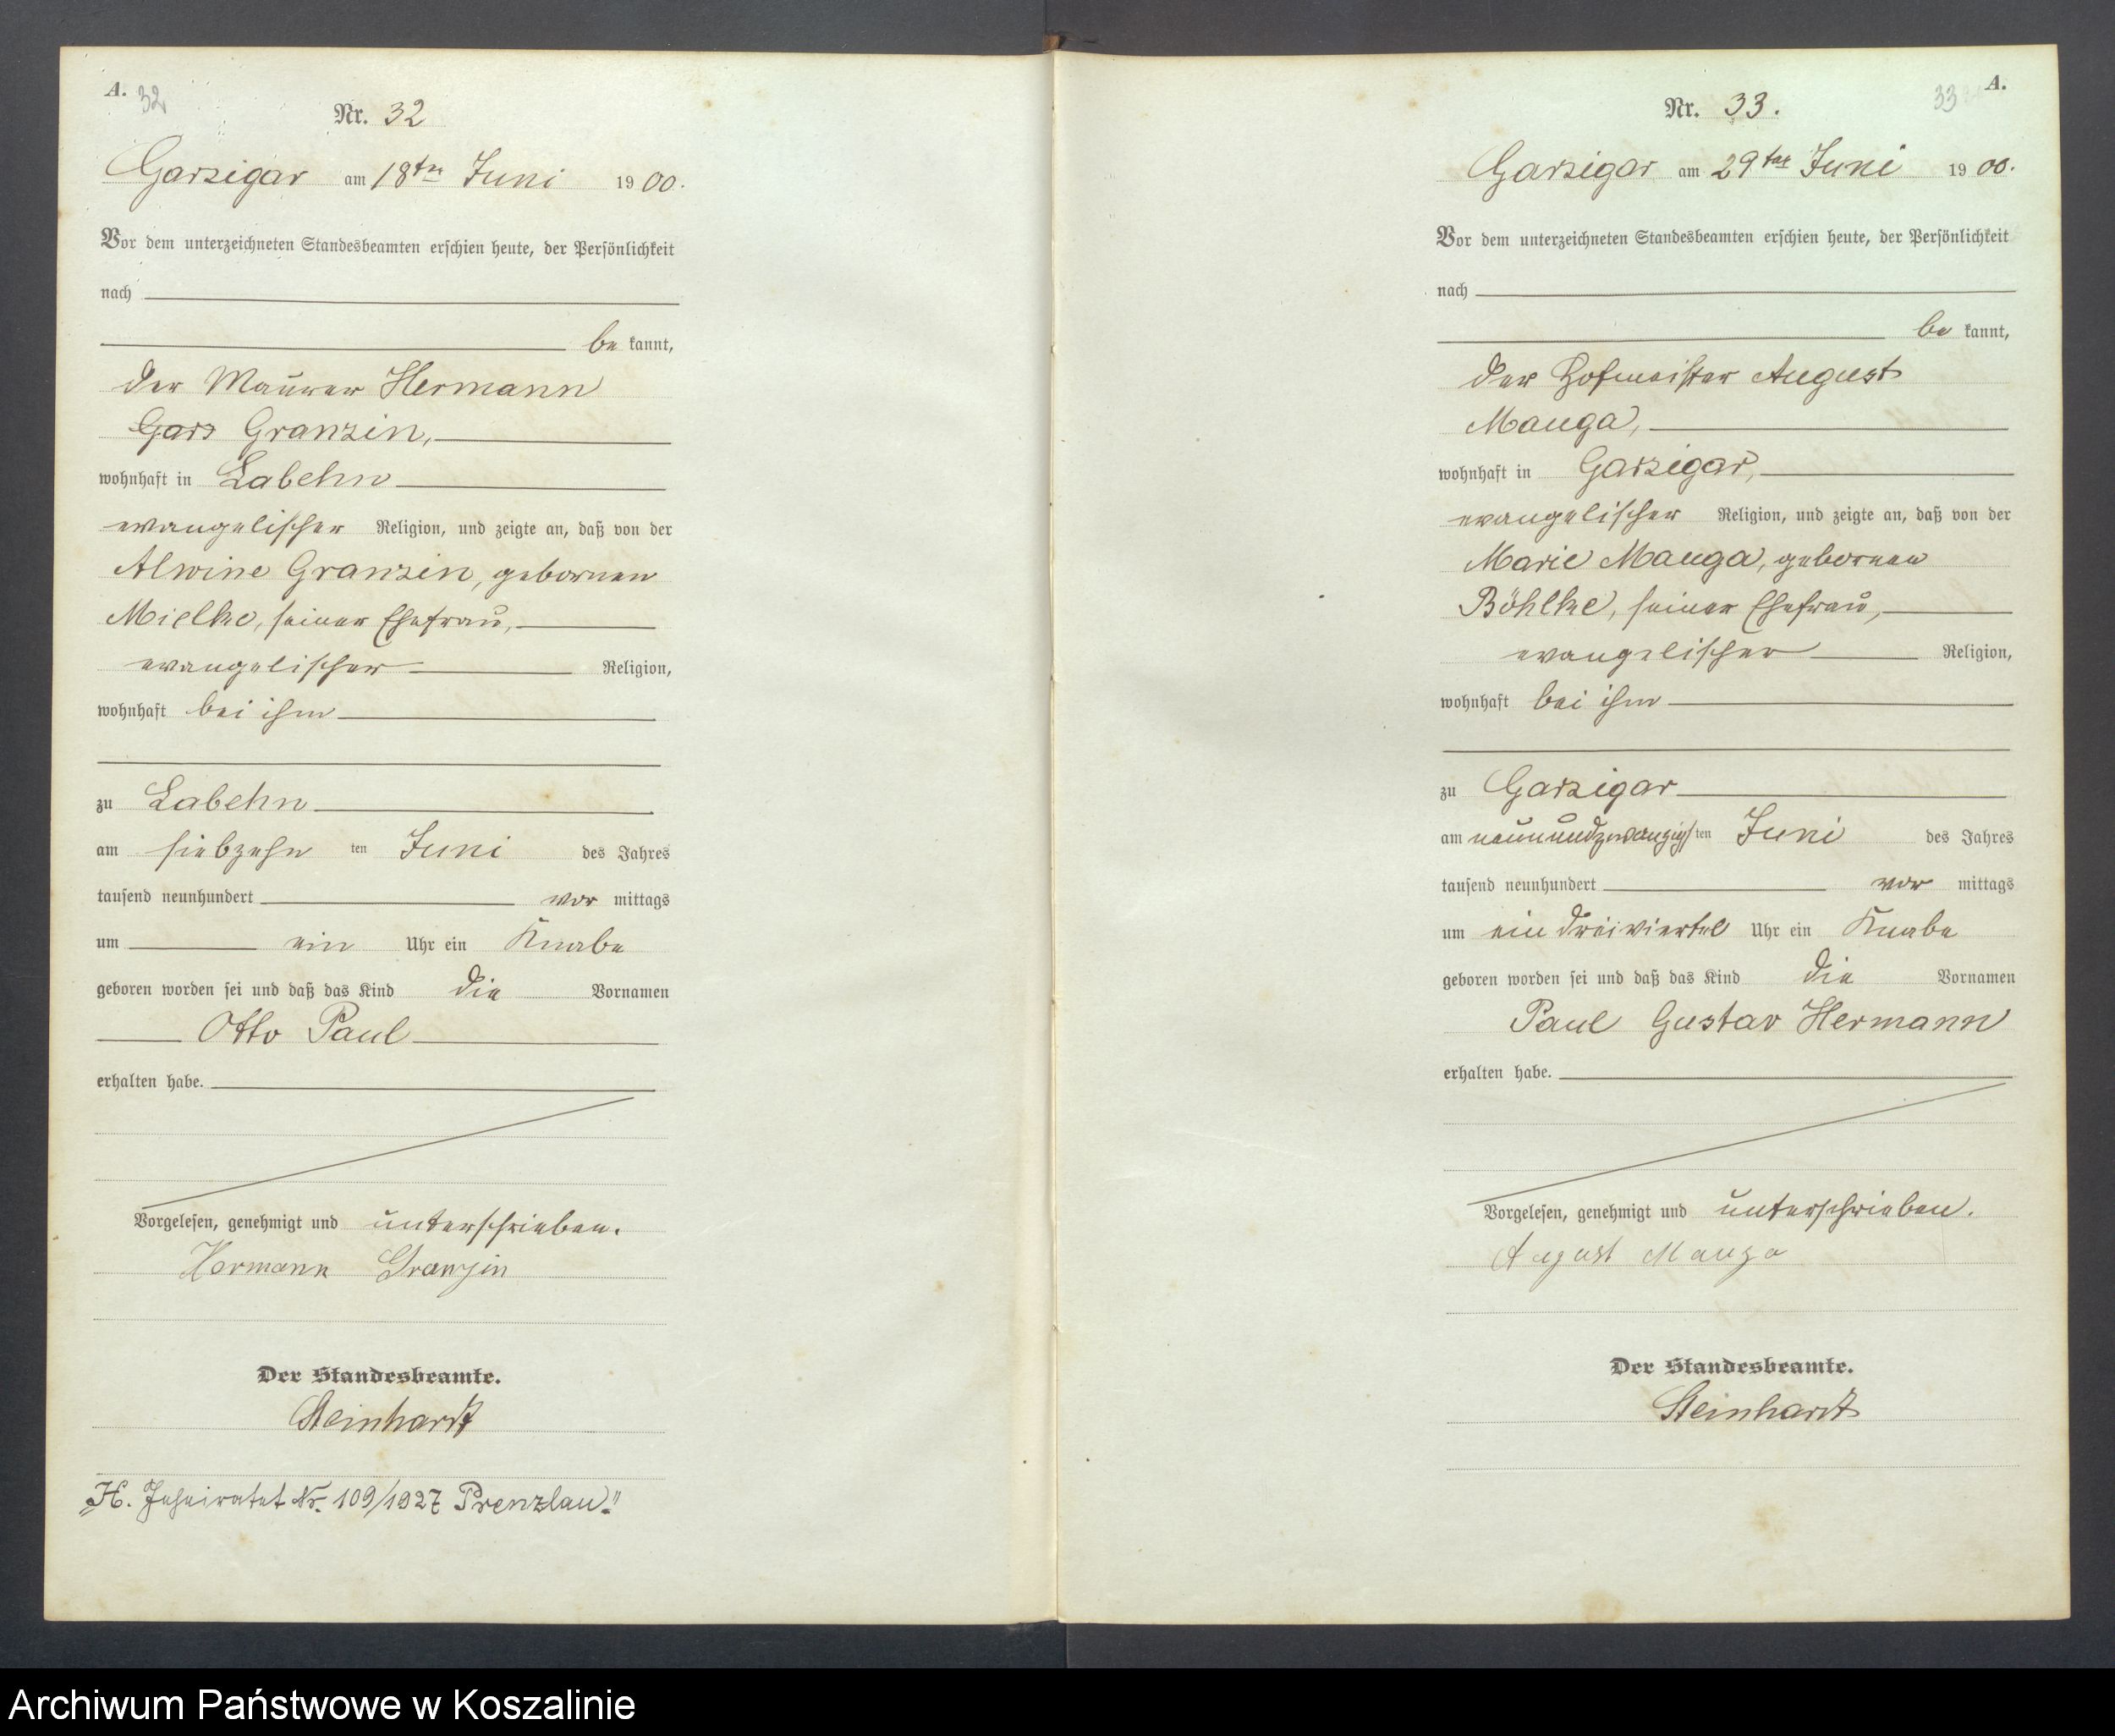 A.
32
Nr. 32
Garzigar am 18ten Juni 1900.
Vor dem unterzeichneten Standesbeamten erschien heute, der Persönlichkeit
nach
be kannt,
der Maurer Hermann
Garz Granzin,
wohnhaft in Labehn
evangelischer Religion, und zeigte an, daß von der
Alwine Granzin, gebornen
Mielke, seiner Ehefrau,
evangelischer Religion,
wohnhaft bei ihm
zu Labehn
am siebzehn ten Juni des Jahres
tausend neunhundert vor mittags
um ein Uhr ein Knabe
geboren worden sei und daß das Kind die Vornamen
Otto Paul
erhalten habe.
Vorgelesen, genehmigt und unterschrieben.
Hermann Granzin
Der Standesbeamte.
Steinhardt
"H. Geheiratet Nr. 109/1927 Prenzlau."
A.
33
Nr. 33.
Garzigar am 29ten Juni 1900.
Vor dem unterzeichneten Standesbeamten erschien heute, der Persönlichkeit
nach
be kannt,
der Hofmeister August
Manga,
wohnhaft in Garzigar,
evangelischer Religion, und zeigte an, daß von der
Marie Manga, gebornen
Böhlke, seiner Ehefrau,
evangelischer Religion,
wohnhaft bei ihm
zu Garzigar
am neunundzwanzigsten Juni des Jahres
tausend neunhundert vor mittags
um ein dreiviertel Uhr ein Knabe
geboren worden sei und daß das Kind die Vornamen
Paul Gustav Hermann
erhalten habe.
Vorgelesen, genehmigt und unterschrieben.
August Manga
Der Standesbeamte.
Steinhardt
Archiwum Państwowe w Koszalinie